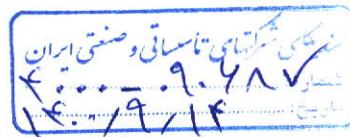 سندیکای شرکتهای تاسیساتی و صنعتی ایران
شماره: ۴۰۰۰-۰۹۰۶۸۷
تاریخ: ۱۴۰۰/۹/۱۴